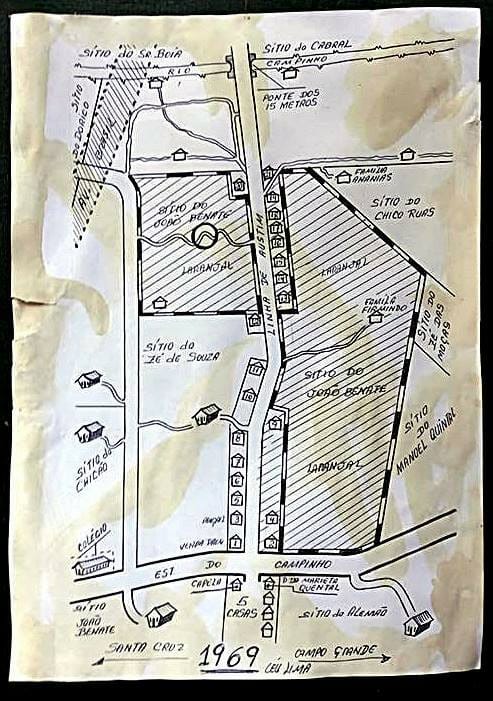 SÍTIO DO SR. BOIA
SÍTIO DO CABRAL
CAMPINHO
RIO
PONTE DOS
15 METROS
SÍTIO
FAMILIA
ANANIAS
SÍTIO DO
CHICO RUAS
SÍTIO DO
JOÃO BENATE
LARANJAL
LINHA DE AUSTIM
LARANJAL
FAMILA
FIRMINDO
SÍTIO DO
ZÉ DAS
MOÇAS
SÍTIO DO
ZÉ DE SOUZA
SÍTIO DO
JOÃO BENATE
SÍTIO
DO
MANOEL QUINTAL
SÍTIO do
CHICÃO
LARANJAL
COLÉGIO
EST DO CAMPINHO
CAPELA
Dª DA MARIETA
QUENTAL
5
CASAS
SÍTIO
JOÃO
BENATE
SÍTIO do ALEMÃO
SANTA CRUZ
1969
CAMPO GRANDE
CÉU LIMA